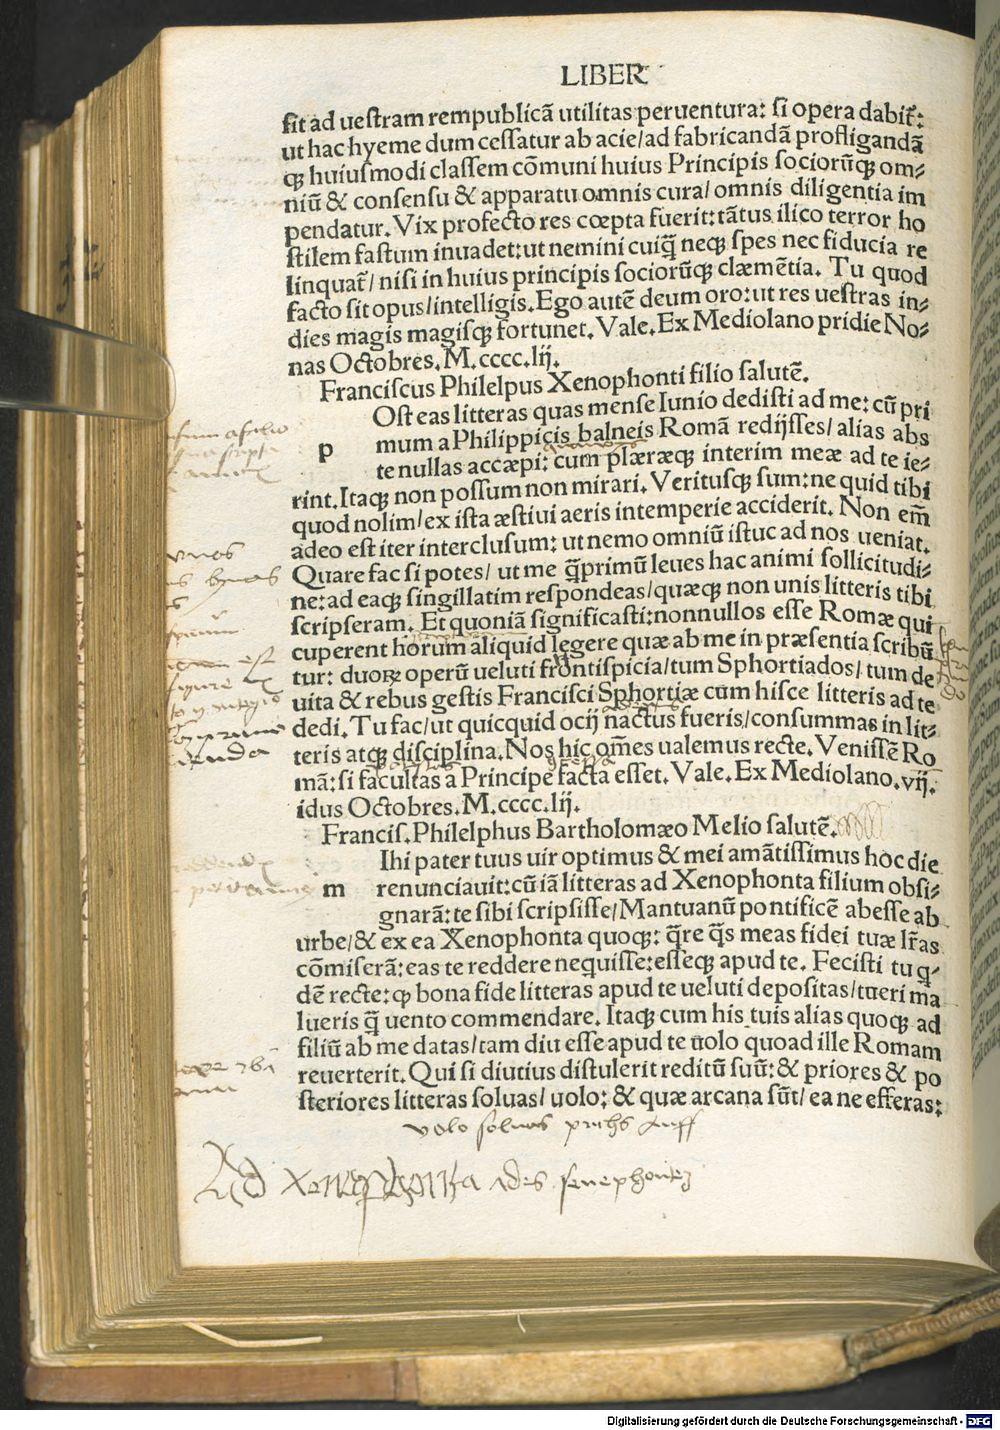 LIBER
sit ad uestram rempublicā utilitas peruentura: si opera dabit̄:
ut hac hyeme dum cessatur ab acie/ad fabricandā profligandā
qꝫ huiusmodi classem cōmuni huius Principis sociorūqꝫ om⸗
niū & consensu & apparatu omnis cura/omnis diligentia im
pendatur. Vix profecto res cœpta fuerit: tātus ilico terror ho
stilem fastum inuadet: ut nemini cuiq̄ neqꝫ spes nec fiducia re
linquat̄/nisi in huius principis sociorūqꝫ clæmētia. Tu quod
facto sit opus/intelligis. Ego autē deum oro: ut res uestras in⸗
dies magis magisqꝫ fortunet. Vale. Ex Mediolano pridie No⸗
nas Octobres. M. cccc. lij.
Franciscus Philelpus Xenophonti filio salutē.
p Ost eas litteras quas mense Iunio dedisti ad me: cū pri
mum a Philippicis balneis Romā redijsses/alias abs
te nullas accæpi: cum plæræqꝫ interim meæ ad te ie⸗
rint. Itaqꝫ non possum non mirari. Veritusqꝫ sum: ne quid tibi
quod nolim/ex ista æstiui aeris intemperie acciderit. Non em̄
adeo est iter interclusum: ut nemo omniū istuc ad nos ueniat.
Quare fac si potes/ut me q̄primū leues hac animi sollicitudi⸗
ne: ad eaqꝫ singillatim respondeas/quæqꝫ non unis litteris tibi
scripseram. Et quoniā significasti: nonnullos esse Romæ qui
cuperent horum aliquid legere quæ ab me in præsentia scribū
tur: duoꝝ operū ueluti frontispicia/tum Sphortiados/tum de
uita & rebus gestis Francisci Sphortiæ cum hisce litteris ad te
dedi. Tu fac/ut quicquid ocij nactus fueris/consummas in lit⸗
teris atqꝫ disciplina. Nos hic om̄es ualemus recte. Venissē Ro
mā: si facultas a Principe facta esset. Vale. Ex Mediolano. vij.
idus Octobres. M. cccc. lij.
Francis. Philelphus Bartholomæo Melio salutē.
m Ihi pater tuus uir optimus & mei amātissimus hoc die
renunciauit: cū iā litteras ad Xenophonta filium obsi⸗
gnarā: te sibi scripsisse/Mantuanū pontificē abesse ab
urbe/& ex ea Xenophonta quoqꝫ: q̄re q̄s meas fidei tuæ lr̄as
cōmiserā: eas te reddere nequisse: esseqꝫ apud te. Fecisti tu q⸗
dē recte: qꝫ bona fide litteras apud te ueluti depositas/tueri ma
lueris q̄ uento commendare. Itaqꝫ cum his tuis alias quoqꝫ ad
filiū ab me datas/tam diu esse apud te uolo quoad ille Romam
reuerterit. Qui si diutius distulerit reditū suū: & priores & po
steriores litteras soluas/uolo: & quæ arcana sūt/ea ne efferas:
volo soluas
Ad Xenophonta
Digitalisierung gefördert durch die Deutsche Forschungsgemeinschaft - DFG